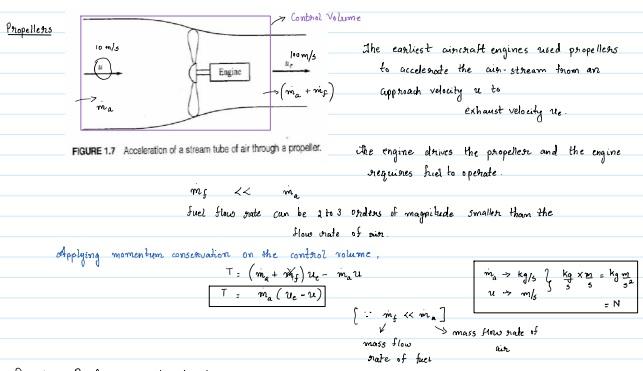 Propellers
Control Volume
10 m/s
u
ṁa
Engine
100 m/s
ue
(ṁa + ṁf)
FIGURE 1.7 Acceleration of a stream tube of air through a propeller.
The earliest aircraft engines used propellers
to accelerate the air-stream from an
approach velocity u to
exhaust velocity ue.
The engine drives the propeller and the engine
requires fuel to operate.
ṁf << ṁa
fuel flow rate can be 2 to 3 orders of magnitude smaller than the
flow rate of air.
Applying momentum conservation on the control volume,
T = (ṁa + ṁf) ue - ṁa u
T = ṁa (ue - u)
ṁa → kg/s } kg/s × m/s = kg m/s²
u → m/s
= N
[∵ ṁf << ṁa]
mass flow
rate of fuel
mass flow rate of
air